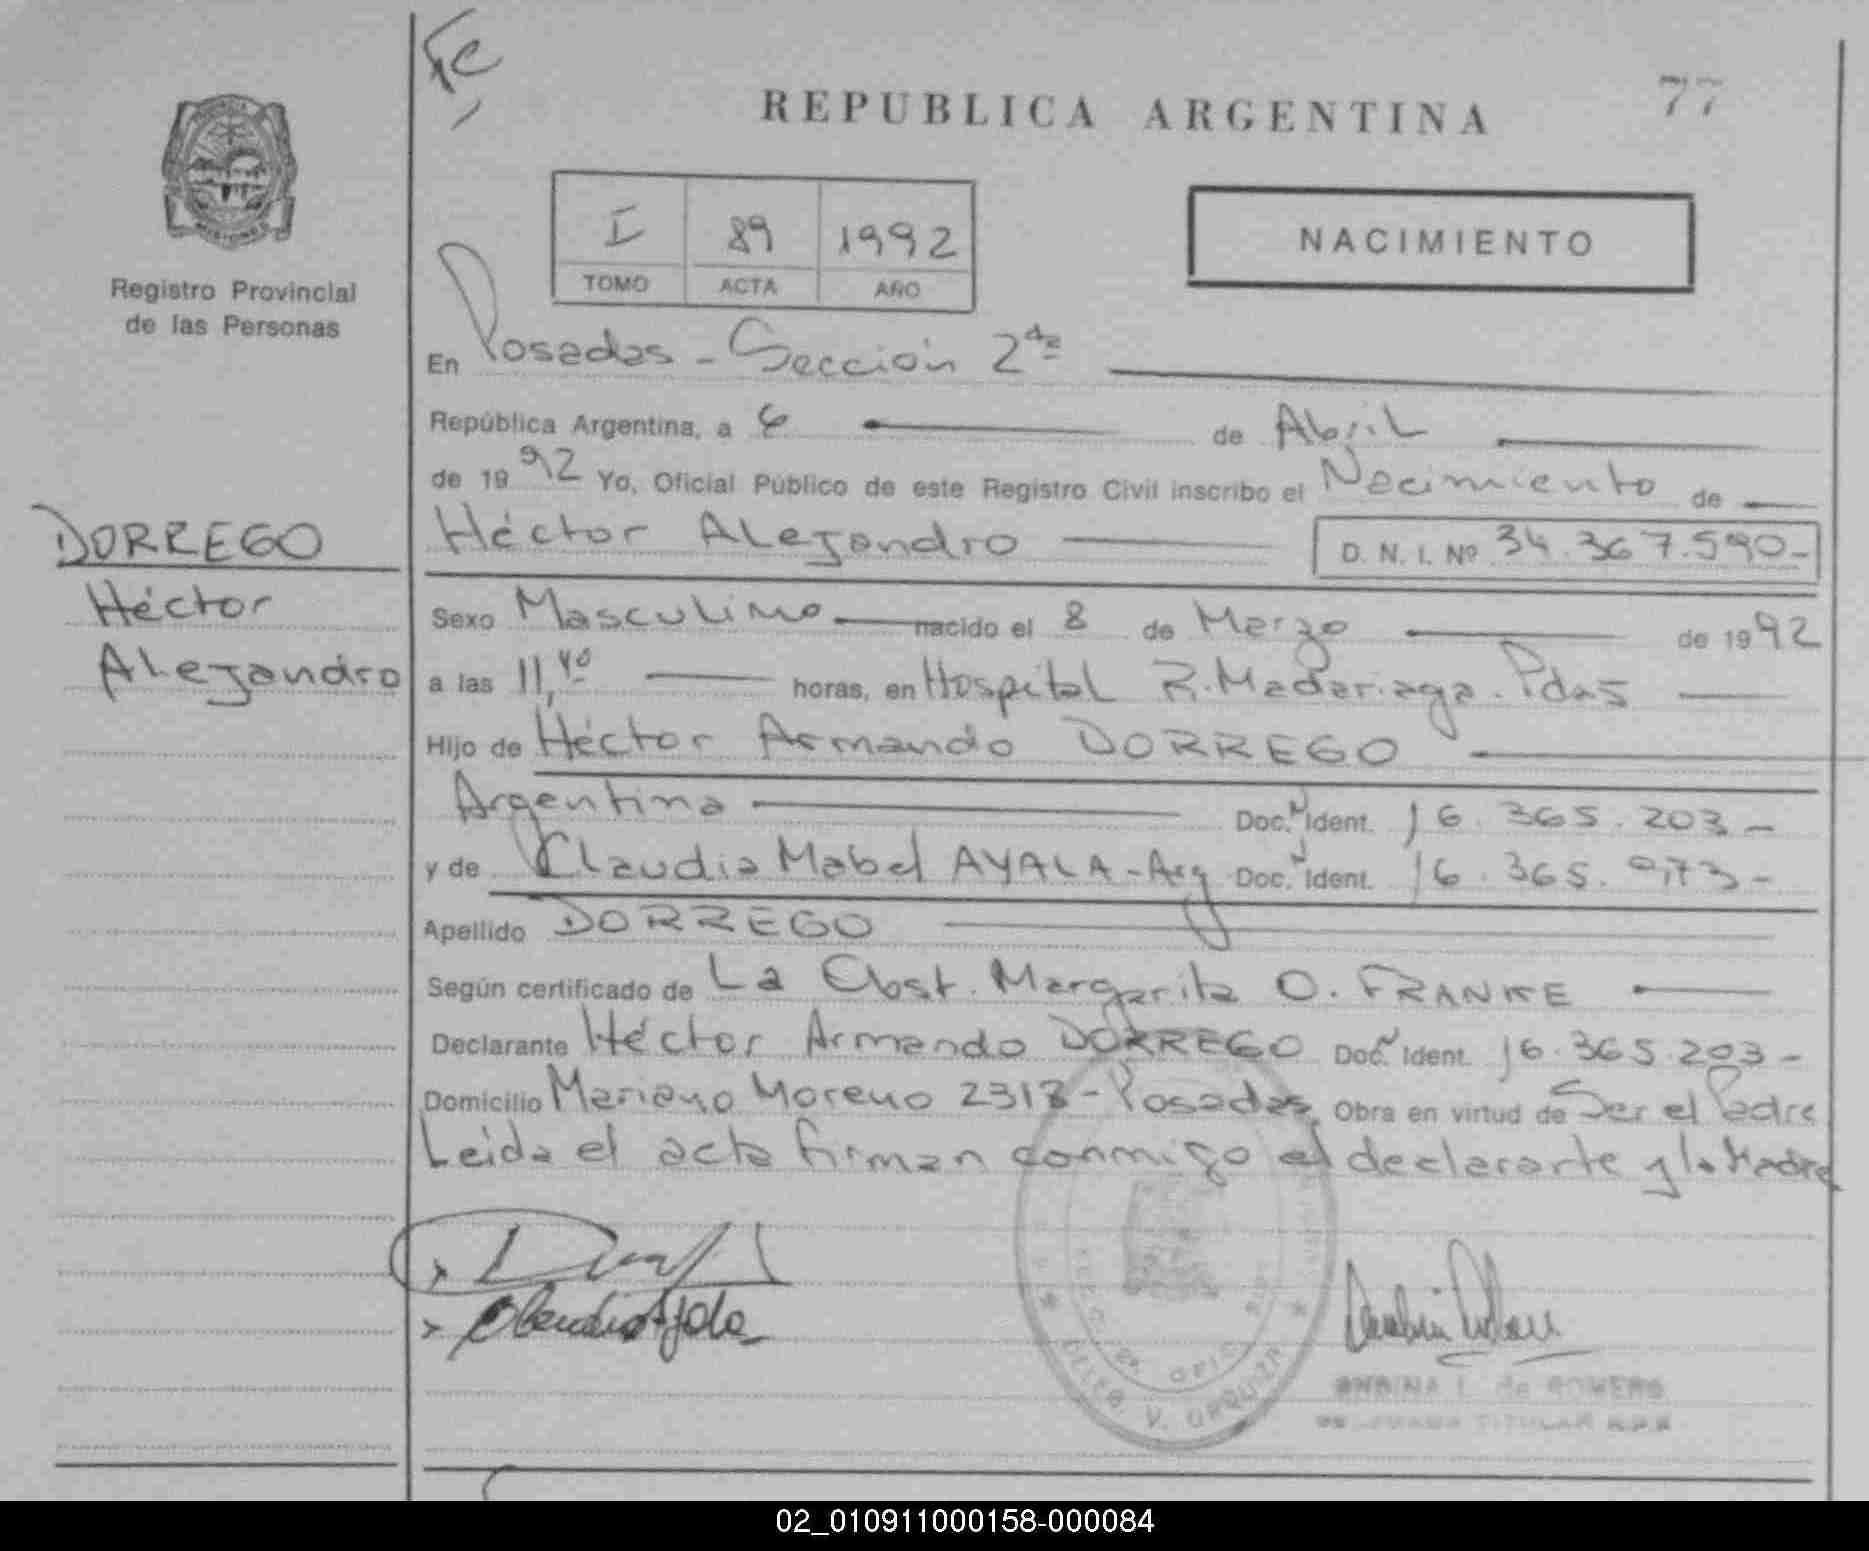 Fc
REPUBLICA ARGENTINA
77
I 89 1992
TOMO ACTA AÑO
NACIMIENTO
Registro Provincial
de las Personas
En Posadas - Sección 2da
República Argentina, a 6 de Abril
de 1992 Yo, Oficial Público de este Registro Civil inscribo el Nacimiento de
DORREGO
Héctor
Alejandro
Héctor Alejandro D. N. I. Nº 34.367.590-
Sexo Masculino nacido el 8 de Marzo de 1992
a las 11,40 horas, en Hospital R. Madariaga. Pdas
Hijo de Héctor Armando DORREGO
Argentina Doc. Ident. 16.365.203-
y de Claudia Mabel AYALA - Arg Doc. Ident. 16.365.973-
Apellido DORREGO
Según certificado de La Obst. Margarita O. FRANKE
Declarante Héctor Armando DORREGO Doc. Ident. 16.365.203-
Domicilio Mariano Moreno 2313 - Posadas Obra en virtud de Ser el Padre
Leida el acta firman conmigo el declarante y la Madre
Claudia Ayala
V. URQUIZA
L. de ROMERO
TITULAR
02_010911000158-000084